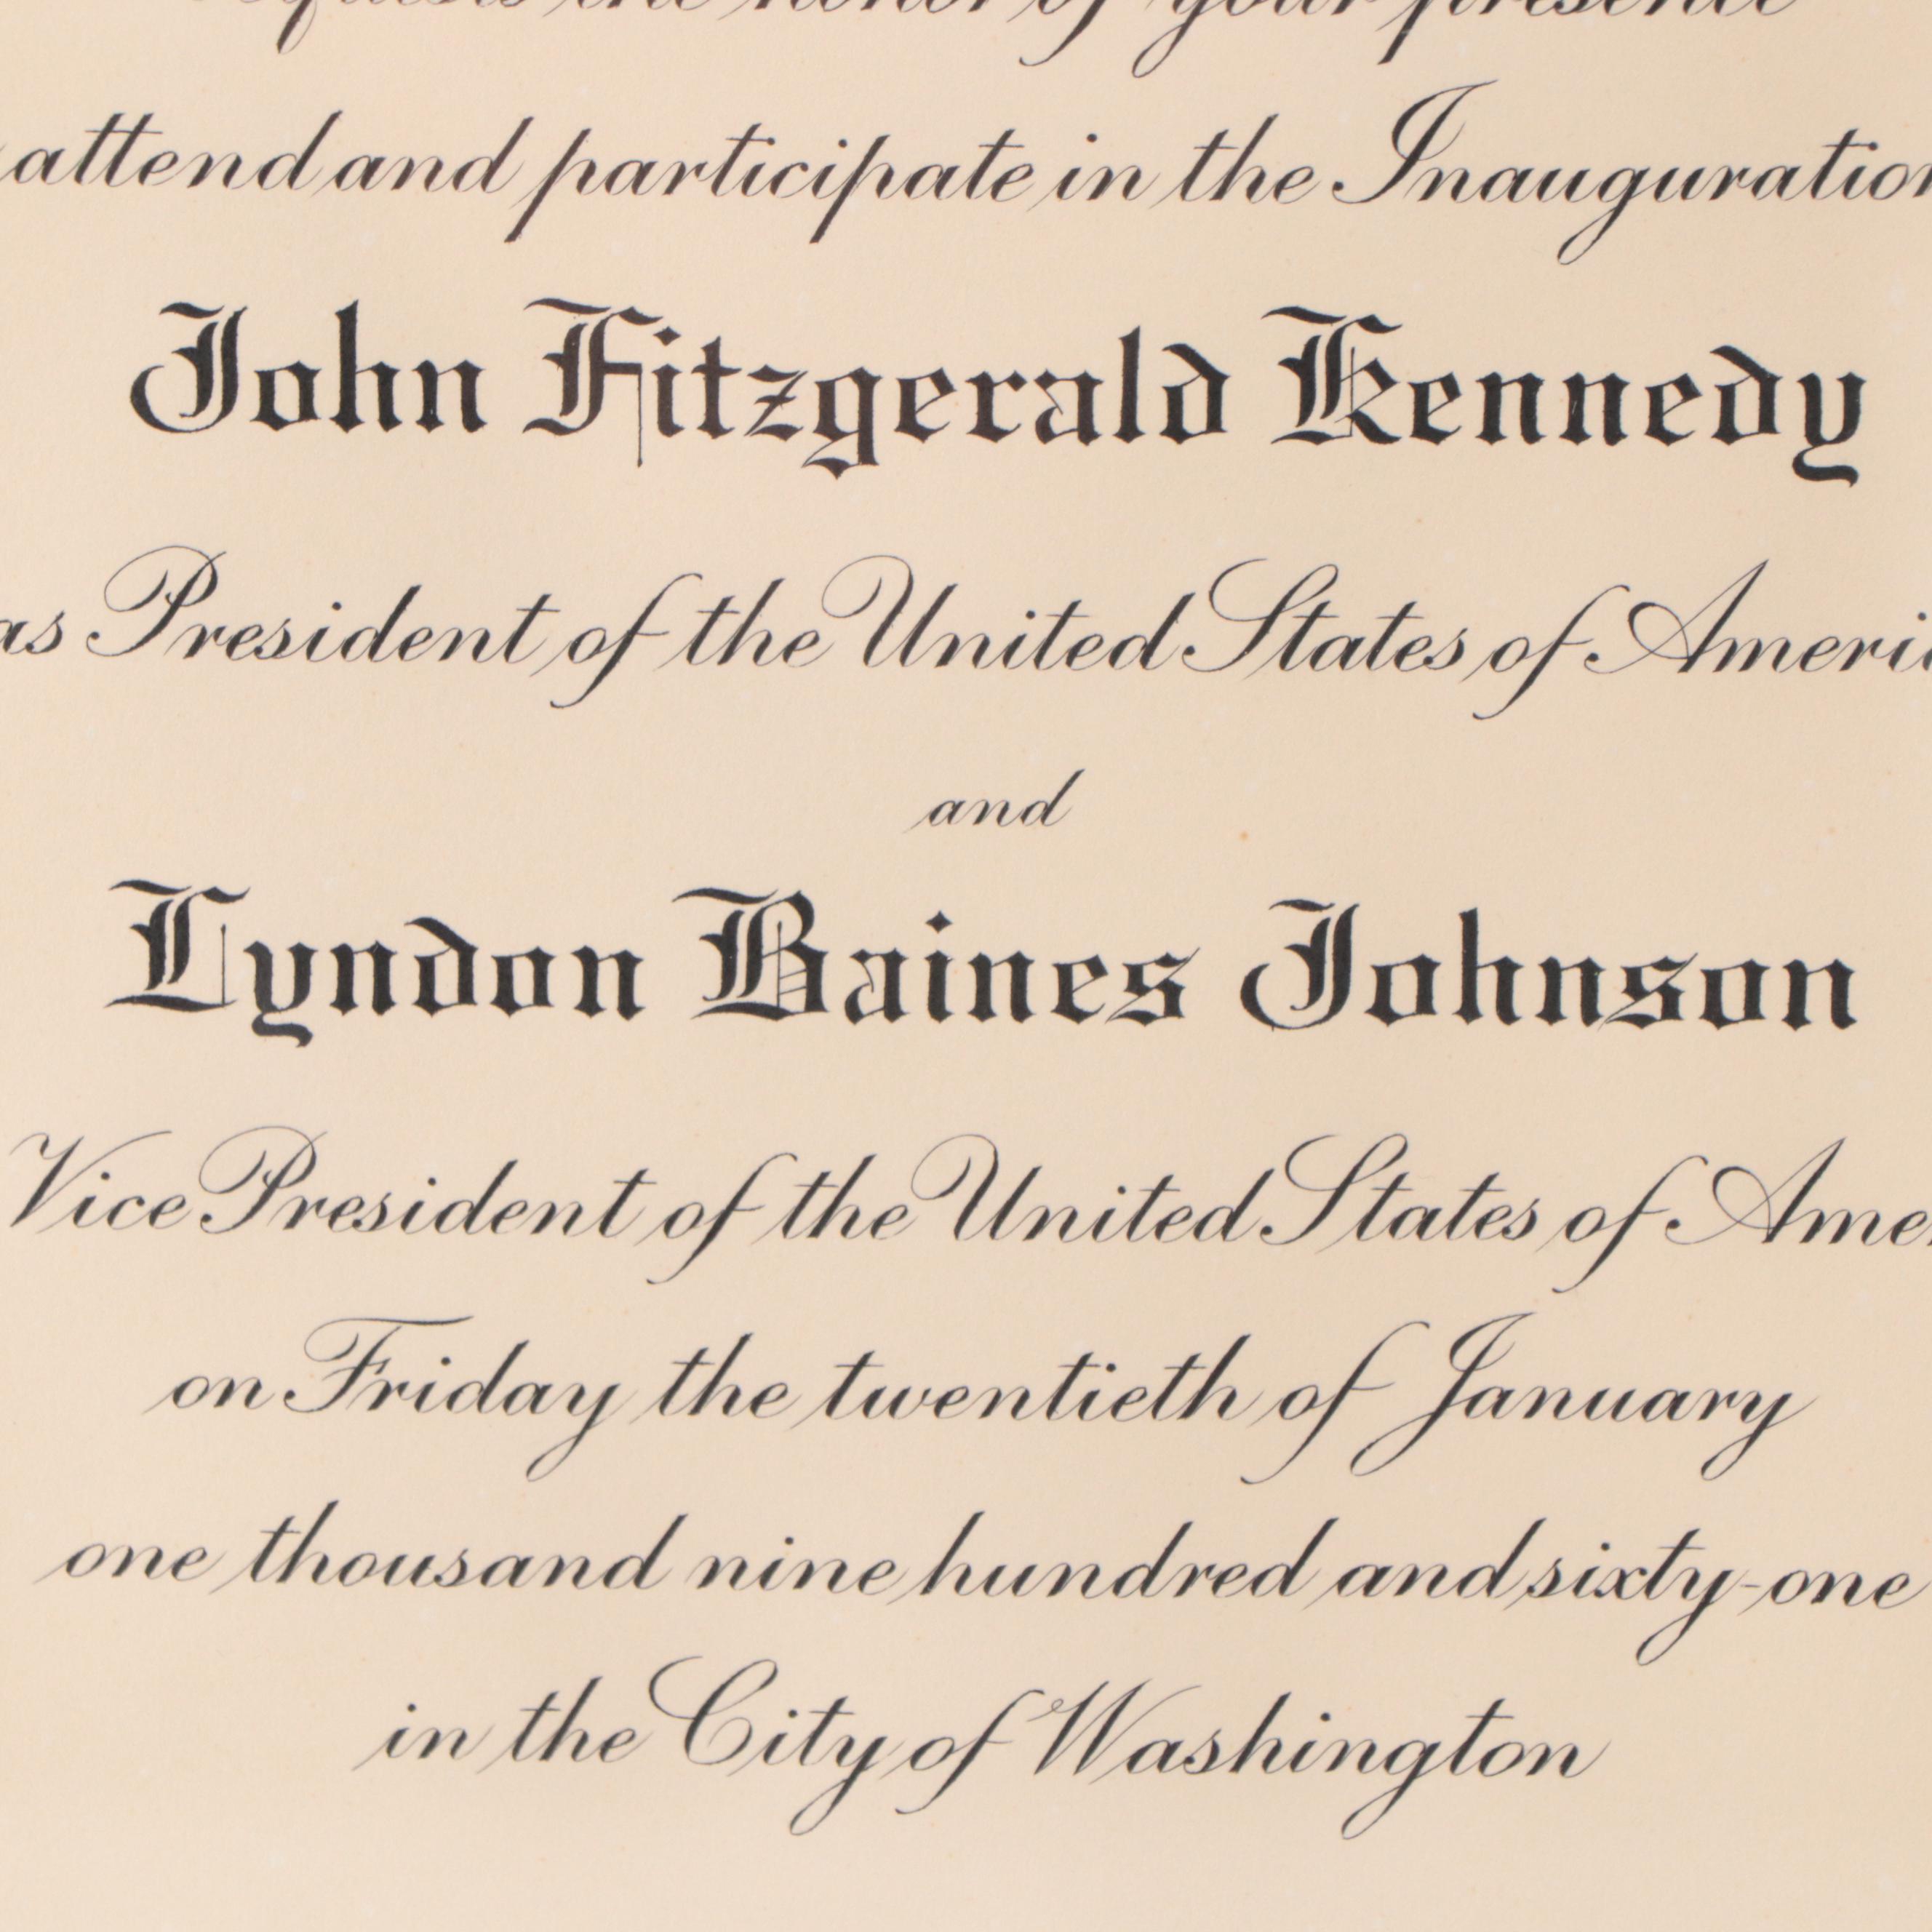 requests the honor of your presence
attend and participate in the Inauguration
John Fitzgerald Kennedy
as President of the United States of Ameri
and
Lyndon Baines Johnson
Vice President of the United States of Ame
on Friday the twentieth of January
one thousand nine hundred and sixty-one
in the City of Washington